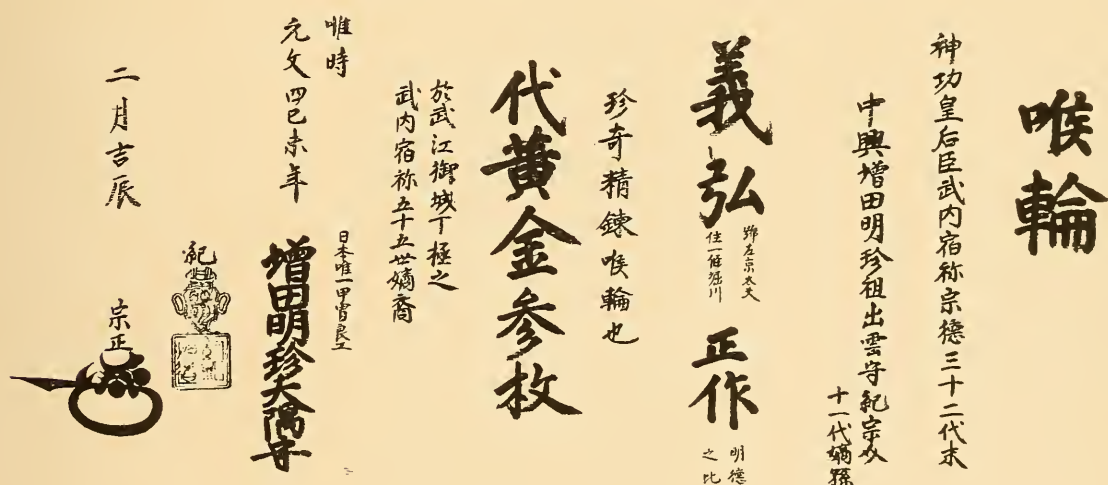 喉輪
神功皇后臣武内宿祢宗德三十二代末
中興增田明珍祖出雲守紀宗
十一代嫡孫
義弘
號左京太夫
住一條堀川
正作
明德
之比
珍奇精鍊喉輪也
代黃金参枚
於武江御城下極之
武内宿祢五十五世嫡裔
唯時
元文四己未年
日本唯一甲冑良工
增田明珍大隅守
紀
二月吉辰
宗正